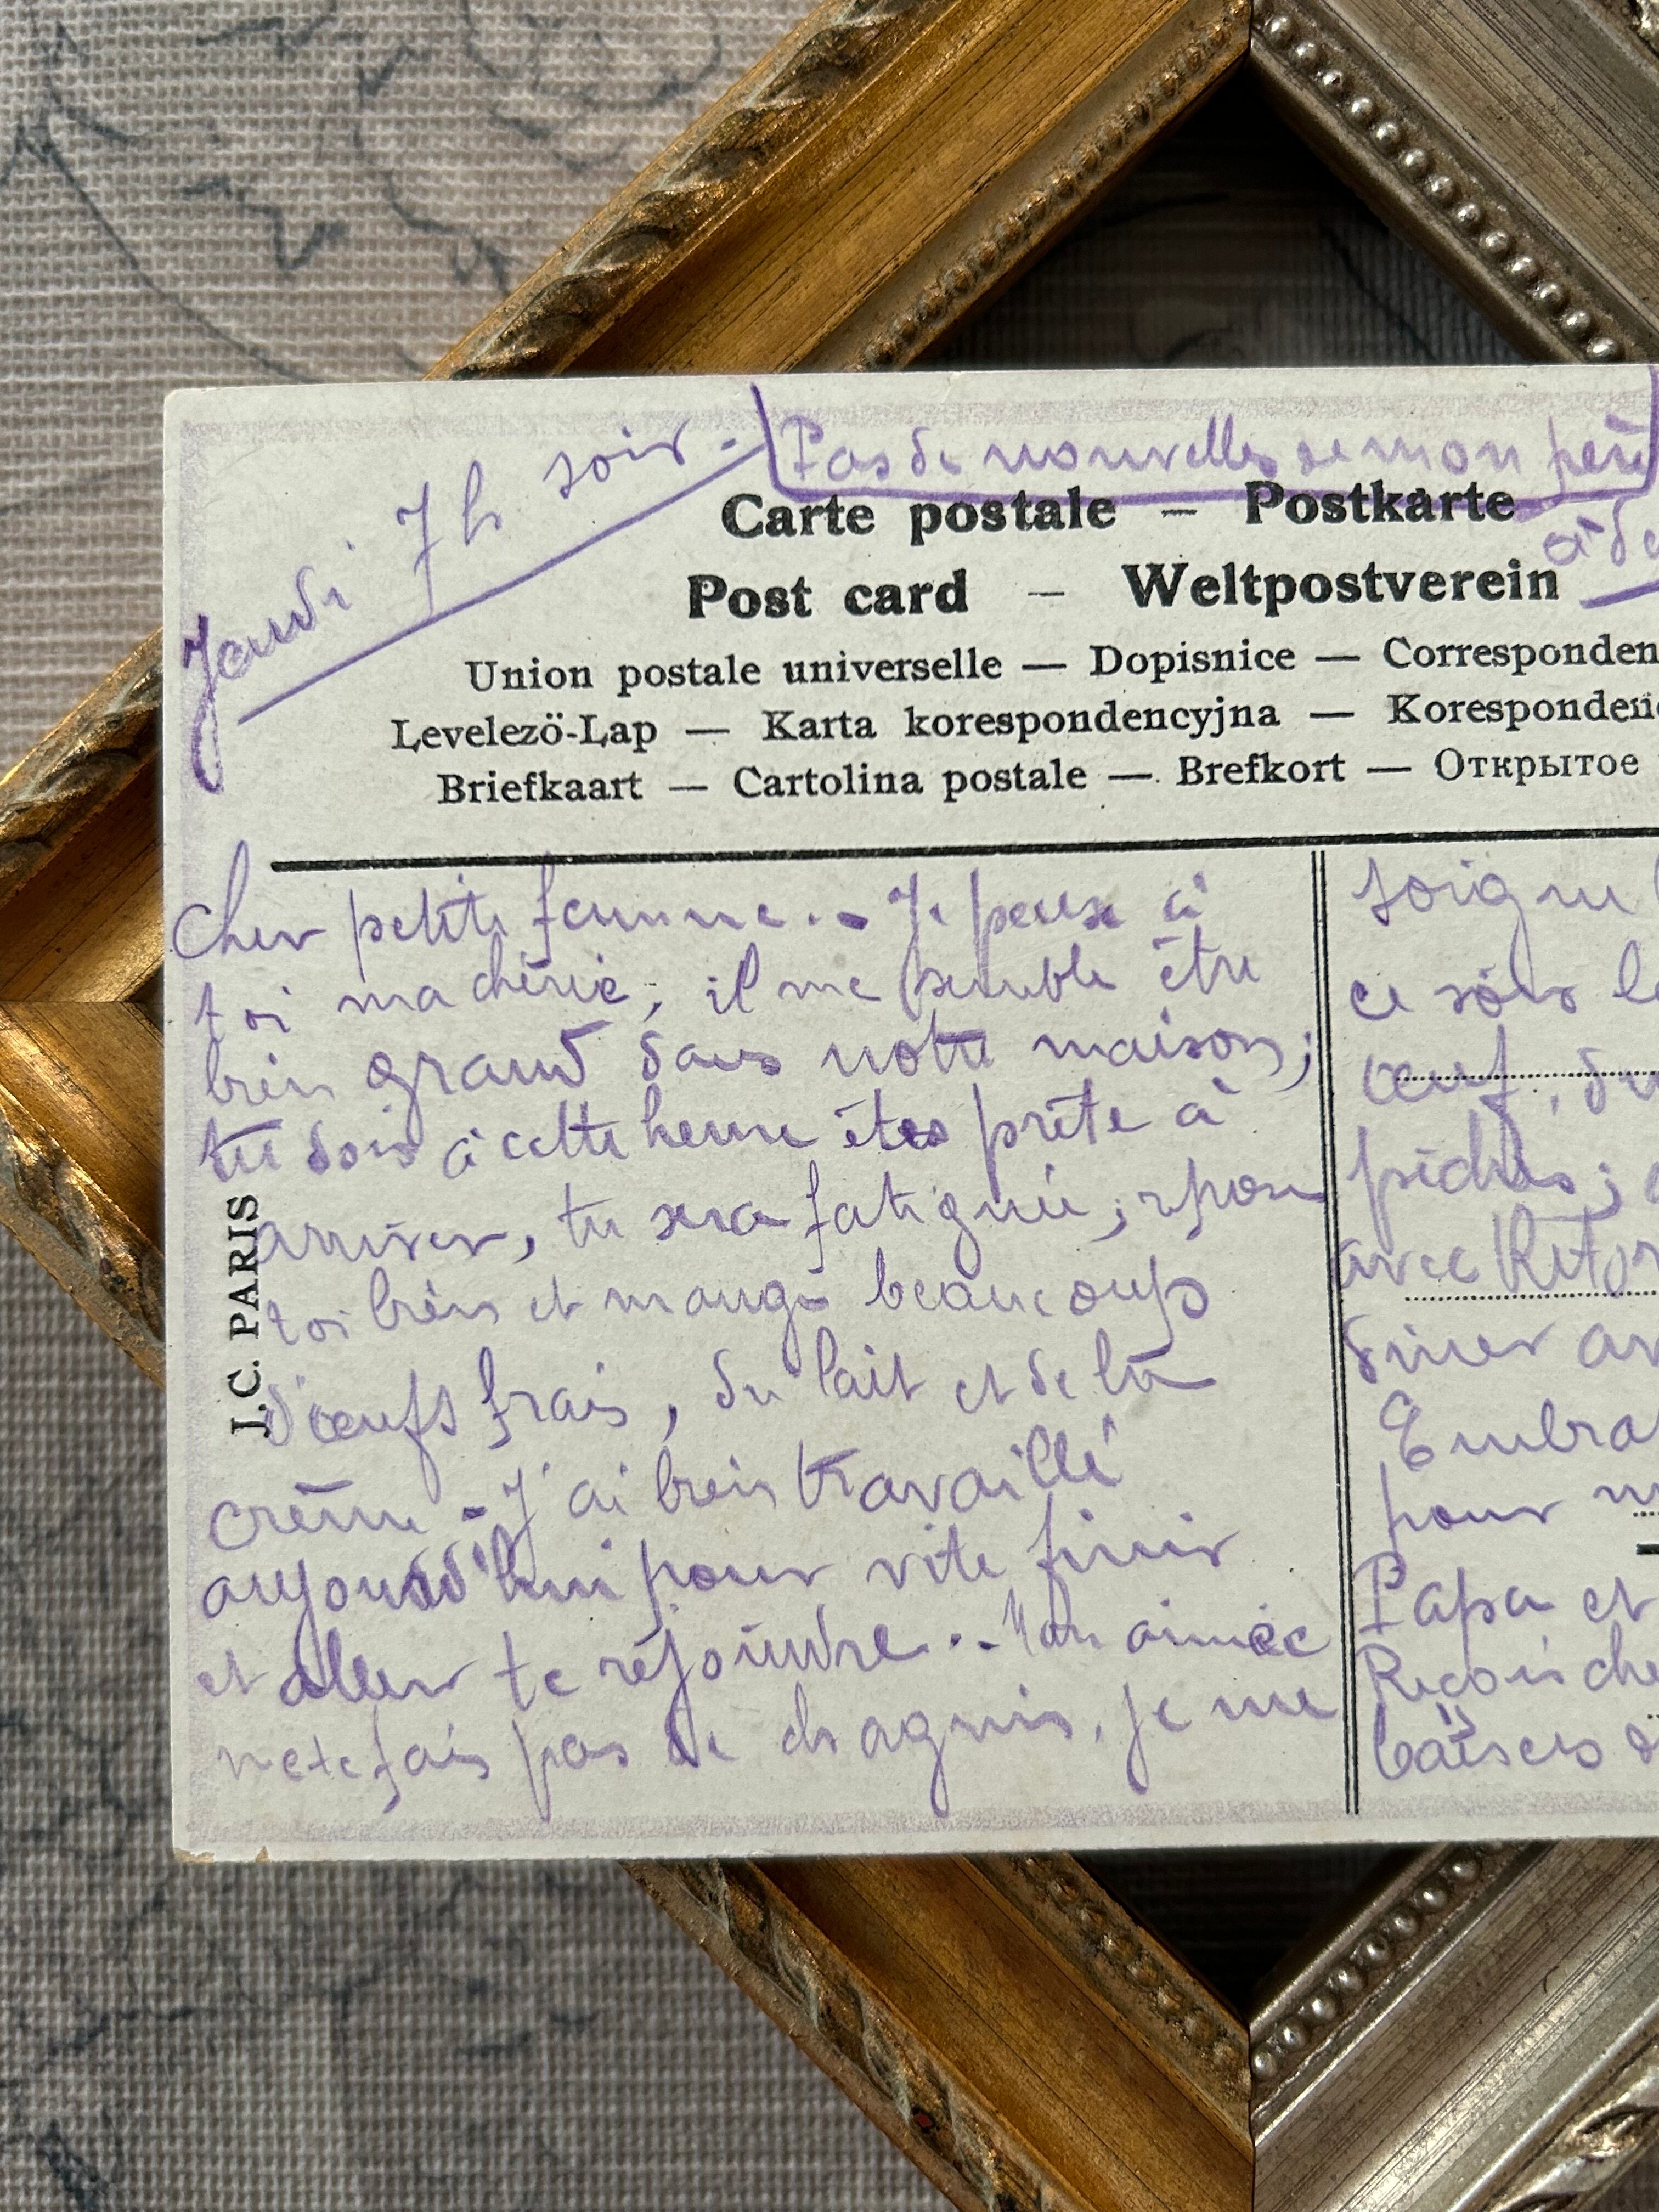 Jeudi 7h soir -
Pas de nouvelles de mon père
à de
Carte postale — Postkarte
Post card — Weltpostverein
Union postale universelle — Dopisnice — Corresponden
Levelezö-Lap — Karta korespondencyjna — Koresponden
Briefkaart — Cartolina postale — Brefkort — Открытое
J.C. PARIS
Cher petite femme.. - Je pense à
toi ma chérie, il me semble être
bien grand dans notre maison;
tu dois à cette heure êtes prête à
arriver, tu sera fatiguée; repose
toi bien et mange beaucoup
d'œufs frais, du lait et de la
crème. - J'ai bien travaillé
aujourd'hui pour vite finir
et aller te rejoindre.. - Mon aimée
ne te fais pas de chagrin, je me
soigne
ce soir
œuf, du
pêches;
avec
diner
Embra
pour
Papa et
Reçois che
baisers